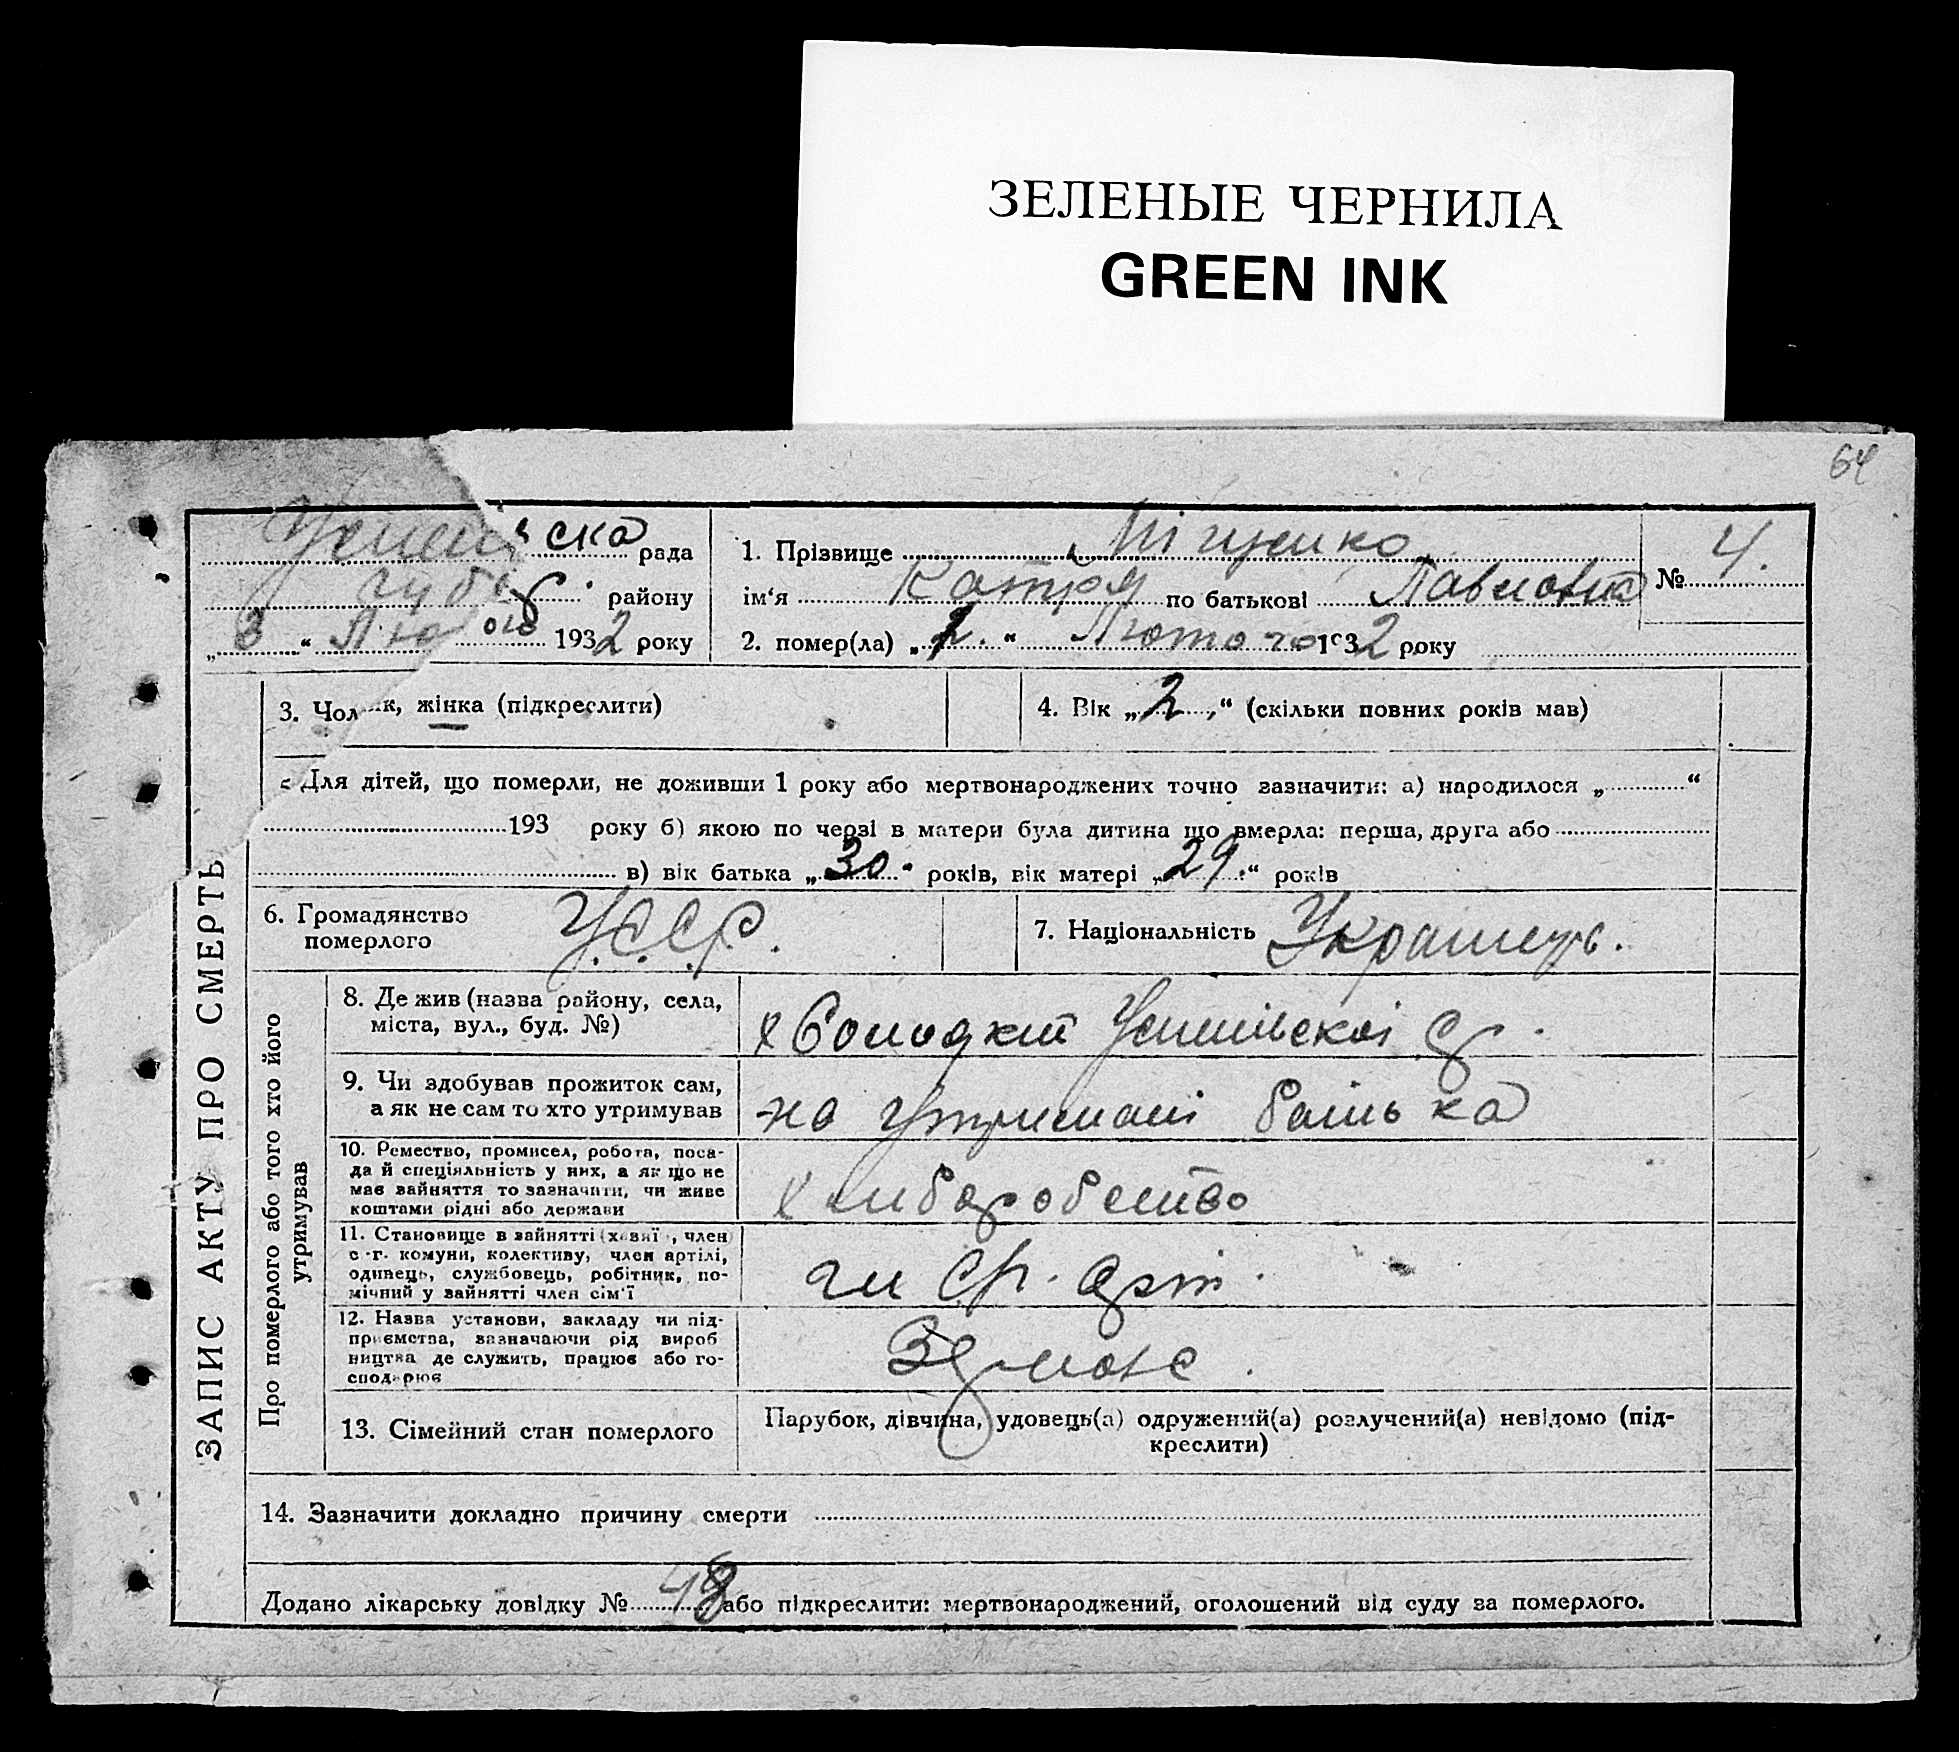 ЗЕЛЕНЫЕ ЧЕРНИЛА
GREEN INK
64
ЗАПИС АКТУ ПРО СМЕРТЬ
ска рада
району
"3" Лютого 1932 року
1. Прізвище Міщенко
ім'я Катря по батькові Павловна
2. помер(ла) „2." Лютого 1932 року
№ 4.
3. Чол к, жінка (підкреслити)
4. Вік „2" (скільки повних років мав)
Для дітей, що померли, не доживши 1 року або мертвонароджених точно зазначити: а) народилося „ “
193 року б) якою по черзі в матери була дитина що вмерла: перша, друга або
в) вік батька „30" років, вік матері „29" років
6. Громадянство померлого У.С.С.Р.
7. Національність
Про померлого або того хто його утримував
8. Де жив (назва району, села,
міста, вул., буд. №)
9. Чи здобував прожиток сам,
а як не сам то хто утримував
на утримані батька
10. Ремество, промисел, робота, поса-
да й спеціяльність у них, а як що не
має зайняття то зазначити, чи живе
коштами рідні або держави
хлиборобство
11. Становище в зайнятті (хазяї, член
с-г. комуни, колективу, член артілі,
одинець, службовець, робітник, по-
мічний у зайнятті член сім'ї
чл ср. арт.
12. Назва установи, закладу чи під-
приємства, зазначаючи рід вироб
ництва де служить, працює або го-
сподарює
13. Сімейний стан померлого
Парубок, дівчина, удовець(а) одружений(а) розлучений(а) невідомо (під-
креслити)
14. Зазначити докладно причину смерти
Додано лікарську довідку № 48 або підкреслити: мертвонароджений, оголошений від суду за померлого.